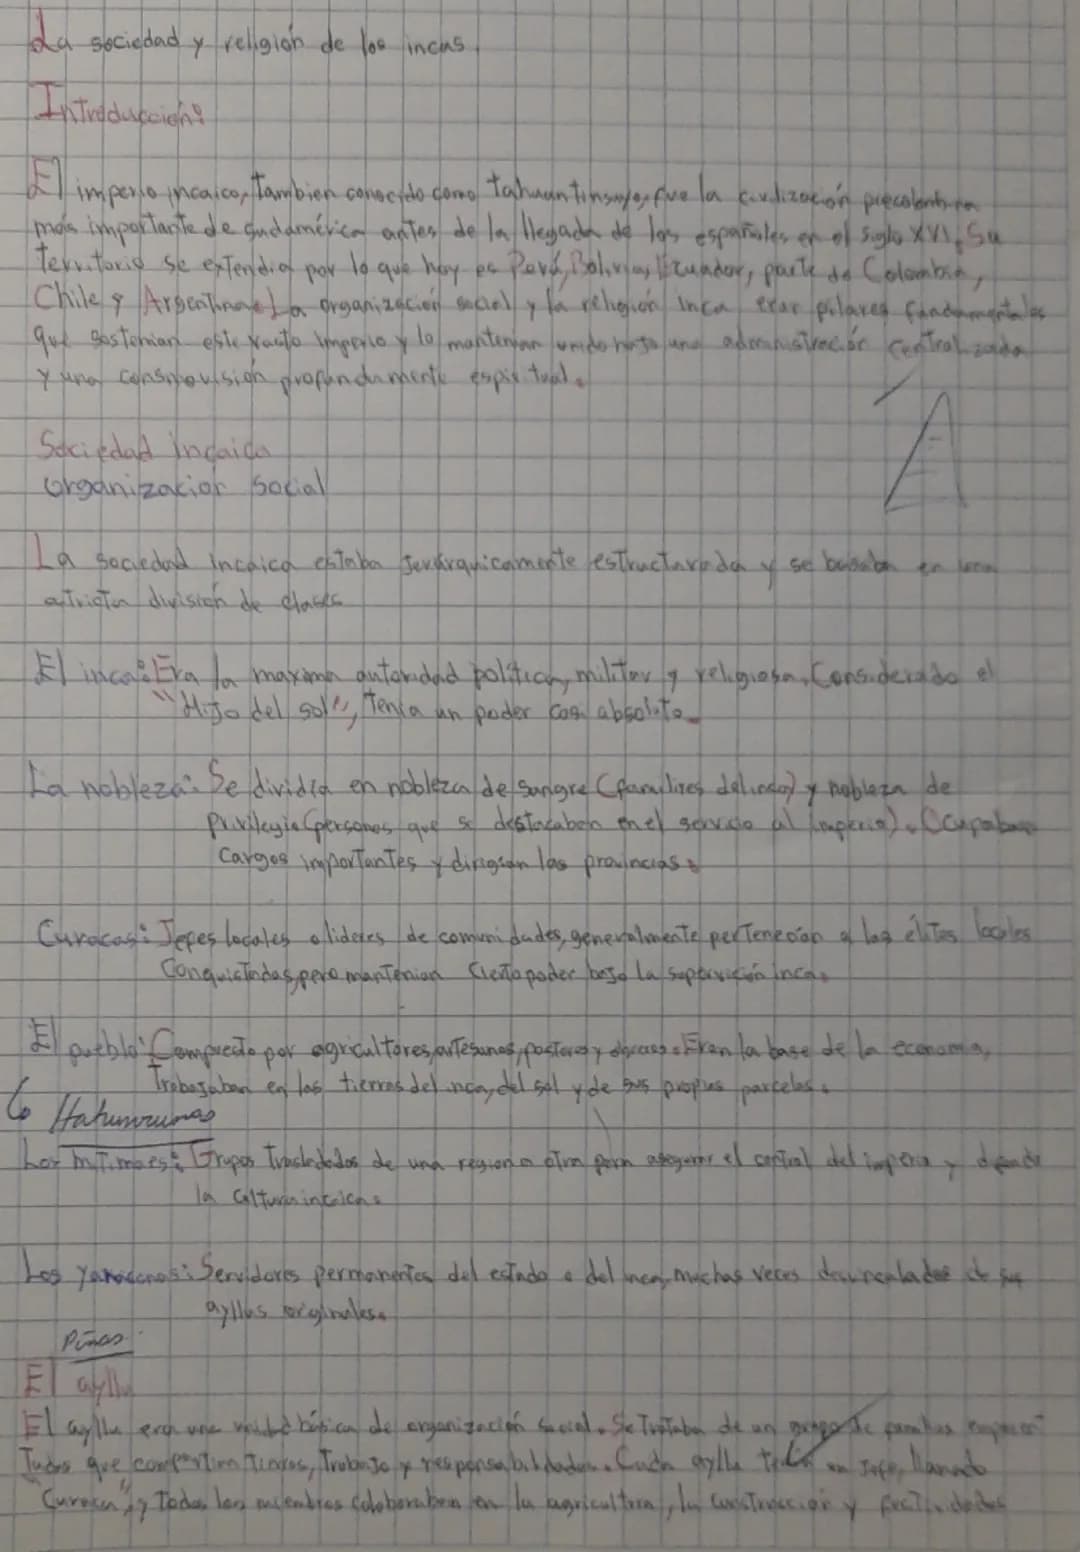 La sociedad y religión de los incas
Introducción:
El imperio incaico, tambien conocido como tahuantinsuyo, fue la civilización precolombina
más importante de sudamérica antes de la llegada de los españoles en el siglo XVI, Su
territorio se extendia por lo que hoy es Perú, Bolivia, Ecuador, parte de Colombia,
Chile y Argentina. La organización social y la religión inca eran pilares fundamentales
que sostenian este vasto imperio y lo mantenian unido bajo una administración centralizada
y una cosmovisión profundamente espiritual.
Sociedad incaica
organización social
La sociedad incaica estaba jerárquicamente estructurada y se basaba en una
estricta división de clases
El inca: Era la maxima autoridad política, militar y religiosa. Considerado el
"Hijo del sol", tenía un poder casi absoluto.
La nobleza: Se dividía en nobleza de sangre (familires del inca) y nobleza de
privilegio (personas que se destacaban en el servicio al imperio). Ocupaban
cargos importantes y dirigian las provincias.
Curacas: Jefes locales o lideres de comunidades, generalmente pertenecían a las élites locales
conquistadas, pero mantenian cierto poder bajo la supervisión inca.
El pueblo: Compuesto por agricultores, artesanos, pastores y obreros. Eran la base de la economia,
Trabajaban en las tierras del inca, del sol y de sus propias parcelas.
Hatunrunas
Los mitimaes: Grupos trasladados de una region a otra para asegurar el control del imperio y
la cultura incaica.
Los yanaconas: Servidores permanentes del estado o del inca, muchas veces desvinculados de sus
ayllus originales.
Piñas
El ayllu
El ayllu era una unidad básica de organización social. Se trataba de un grupo de familias emparen
tadas que compartian tierras, trabajo y responsabilidades. Cada ayllu tenía un jefe, llamado
"Curaca", y todos los miembros colaboraban en la agricultura, la construcción y